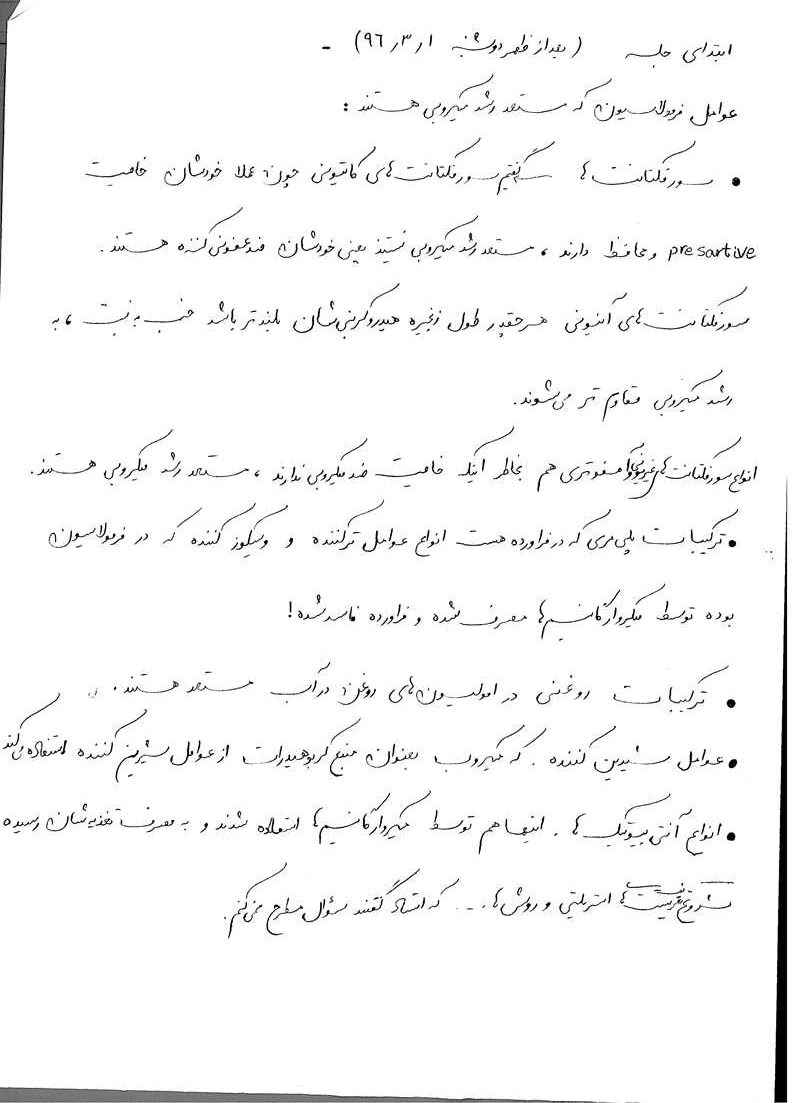 ابتدای جلسه (بعد از ظهر دوشنبه ۹۶٫۳٫۱) -
عوامل فرمولاسیون که مستعد رشد میکروبی هستند :
• سورفکتانت ها گفتیم سورفکتانت های کاتیونی چون عملا خودشان خاصیت
presartive و محافظ دارند ، مستعد رشد میکروبی نیستند یعنی خودشان ضدعفونی کننده هستند .
سورفکتانت های آنیونی هر چقدر طول زنجیره هیدروکربنی شان بلندتر باشد به نسبت ، به
رشد میکروبی مقاوم تر می‌شوند .
انواع سورفکتانت های غیر یونی و آمفوتری هم بخاطر اینکه خاصیت ضد میکروبی ندارند ، مستعد رشد میکروبی هستند .
• ترکیبات پلی مری که در فراورده هست انواع عوامل ترکننده و ویسکوز کننده که در فرمولاسیون
بوده توسط میکروارگانیسم ها مصرف شده و فراورده فاسد شده !
• ترکیبات روغنی در امولسیون های روغن در آب مستعد هستند .
• عوامل شیرین کننده . که میکروب بعنوان منبع کربوهیدرات از عوامل شیرین کننده استفاده می کند
• انواع آنتی بیوتیک ها . اینها هم توسط میکروارگانیسم ها استفاده شدند و به مصرف تغذیه شان رسیده
شروع ها استریلیتی و روش ها ... که استاد گفتند سؤال مطرح نمی کنم .